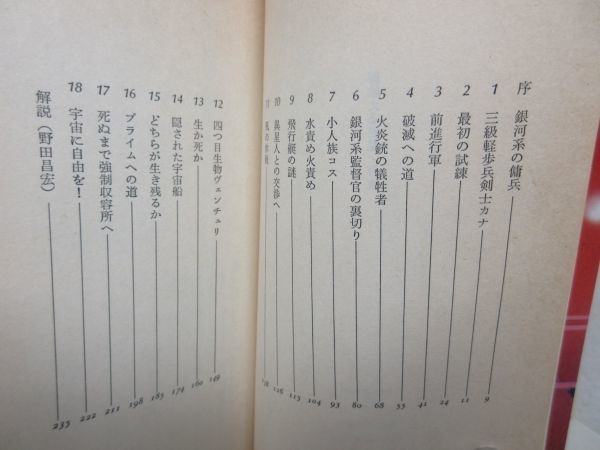 序 銀河系の傭兵 9
1 三級軽歩兵剣士カナ 11
2 最初の試練 24
3 前進行軍 41
4 破滅への道 55
5 火炎銃の犠牲者 68
6 銀河系監督官の裏切り 80
7 小人族コス 93
8 水責め火責め 104
9 飛行艇の謎 113
10 異星人との交渉へ 126
11 138
12 四つ目生物ヴェンチュリ 149
13 生か死か 160
14 隠された宇宙船 174
15 どちらが生き残るか 185
16 プライムへの道 198
17 死ぬまで強制収容所へ 211
18 宇宙に自由を！ 222
解説（野田昌宏） 233